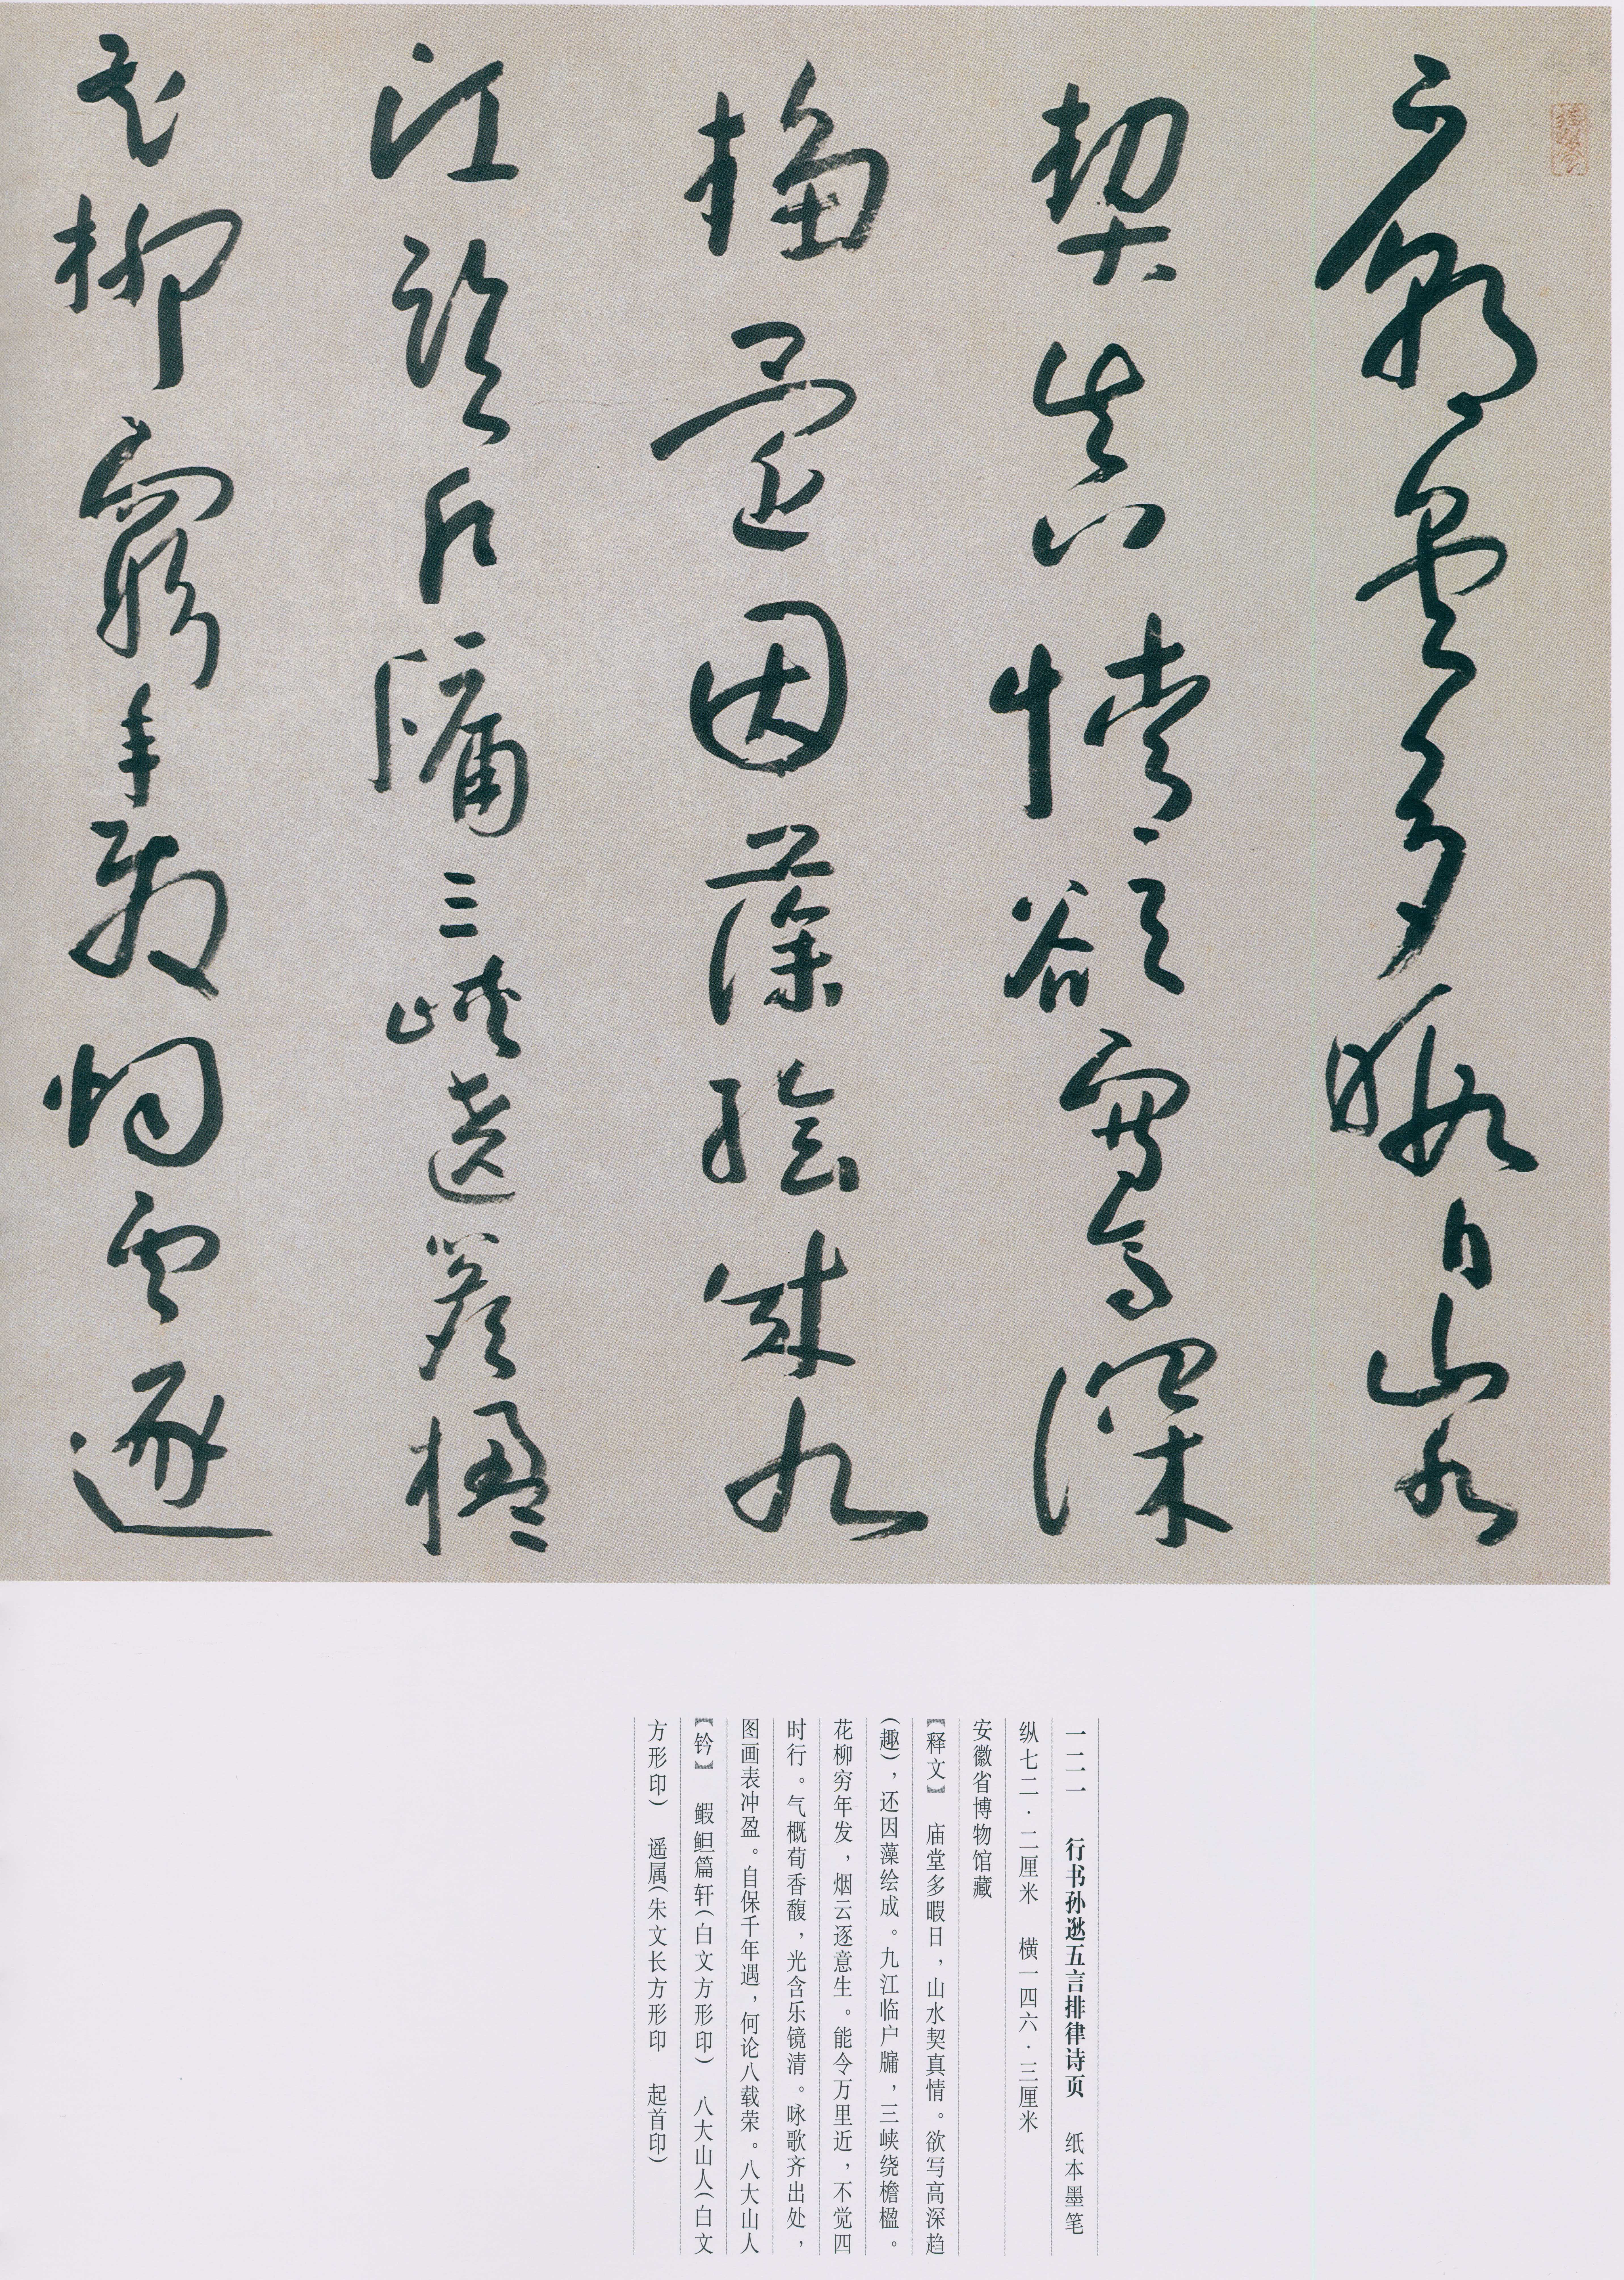 廟堂多暇日山水
契真情欲寫高深
還因藻繪成九
江臨戶牖三峽遶簷楹
花柳窮年發烟雲逐
一二一 行书孙逖五言排律诗页 纸本墨笔
纵七二·二厘米 横一四六·三厘米
安徽省博物馆藏
【释文】 庙堂多暇日，山水契真情。欲写高深趋
（趣），还因藻绘成。九江临户牖，三峡绕檐楹。
花柳穷年发，烟云逐意生。能令万里近，不觉四
时行。气概荀香馥，光含乐镜清。咏歌齐出处，
图画表冲盈。自保千年遇，何论八载荣。八大山人
【钤】 鰕䱇篇轩（白文方形印） 八大山人（白文
方形印） 遥属（朱文长方形印 起首印）